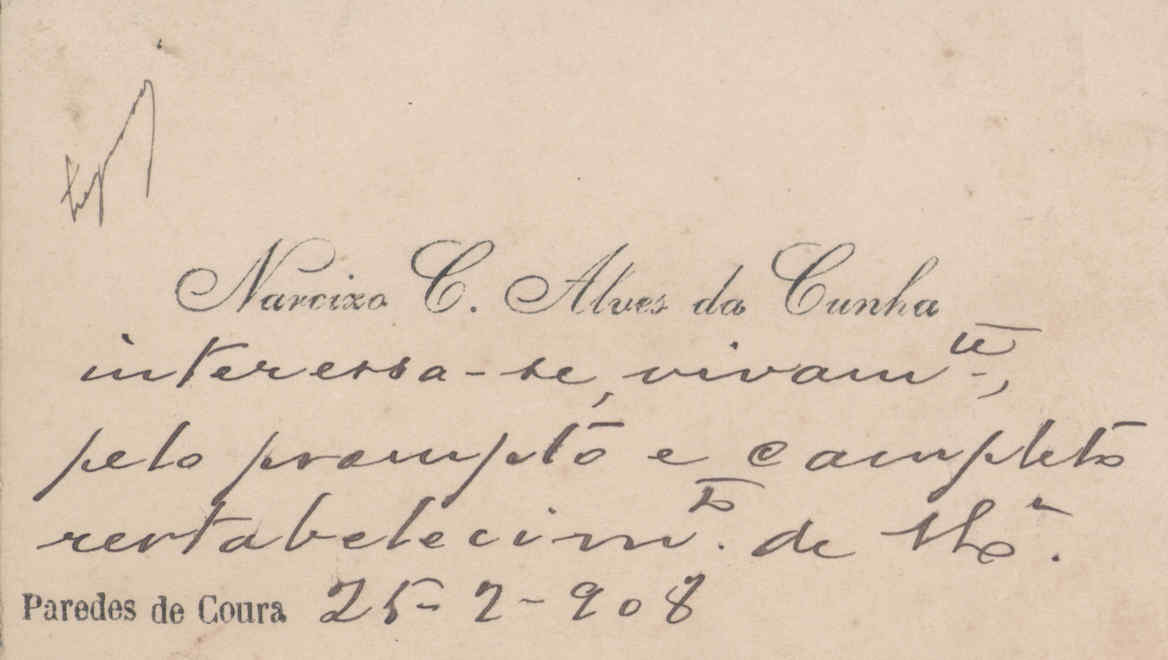 Narcizo C. Alves da Cunha
interessa-se, vivam.te,
pelo prompto e completo
restabelecim.to de
Paredes de Coura 25-2-908